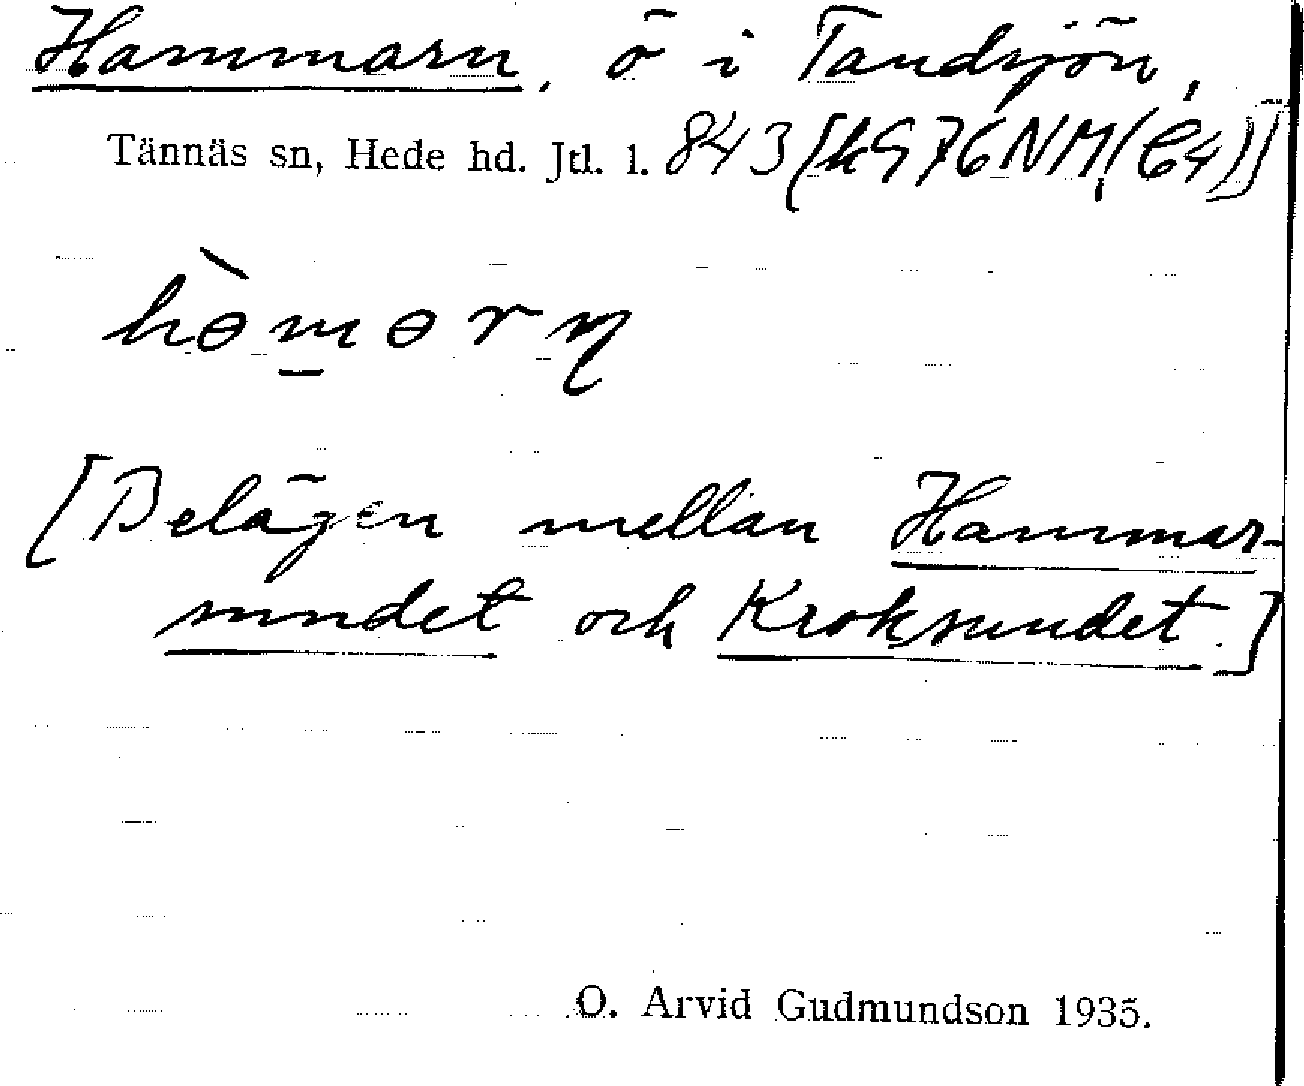 Hammarn, ö i Tandsjön,
Tännäs sn, Hede hd. Jtl. l. 843 [k976NM, (C4)]
hə̀m̲ərn̥
[Belägen mellan Hammar-
sundet och Kroksundet.]
O. Arvid Gudmundson 1935.